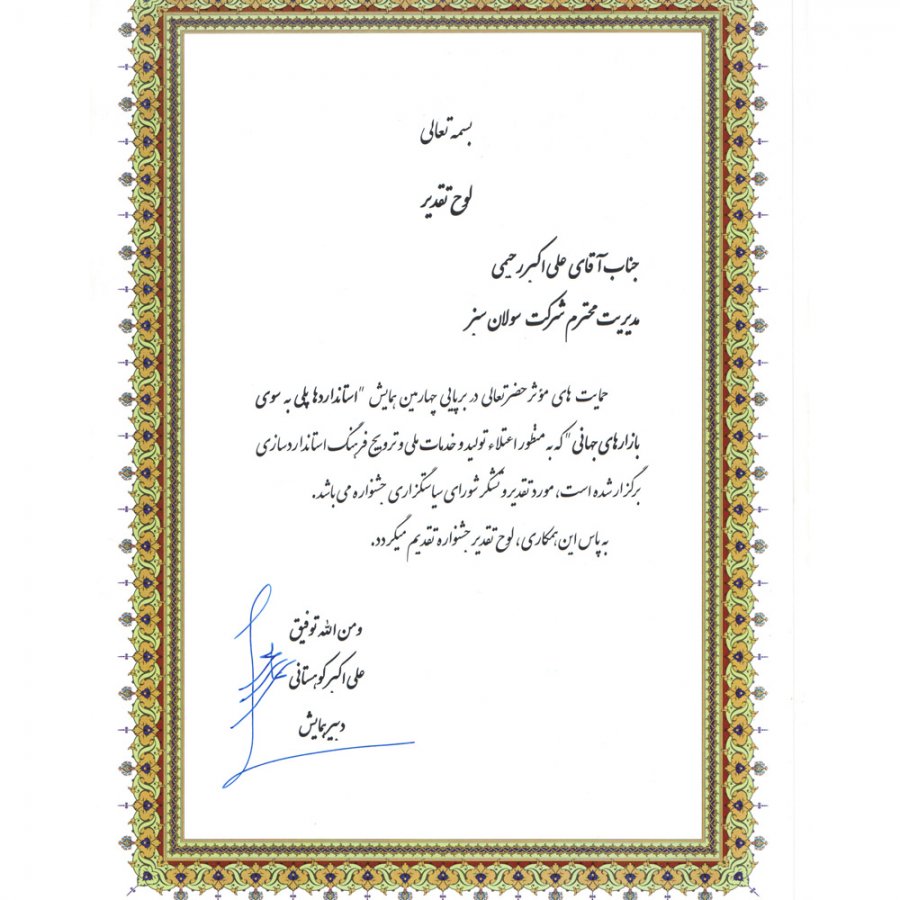 بسمه تعالی
لوح تقدیر
جناب آقای علی اکبر رحیمی
مدیریت محترم شرکت سولان سبز
حمایت های مؤثر حضرتعالی در برپایی چهارمین همایش "استانداردها پلی به سوی
بازارهای جهانی" که به منظور اعتلاء تولید و خدمات ملی و ترویج فرهنگ استانداردسازی
برگزار شده است، مورد تقدیر و تشکر شورای سیاستگزاری جشنواره می باشد.
به پاس این همکاری، لوح تقدیر جشنواره تقدیم میگردد.
ومن الله توفیق
علی اکبر کوهستانی
دبیر همایش